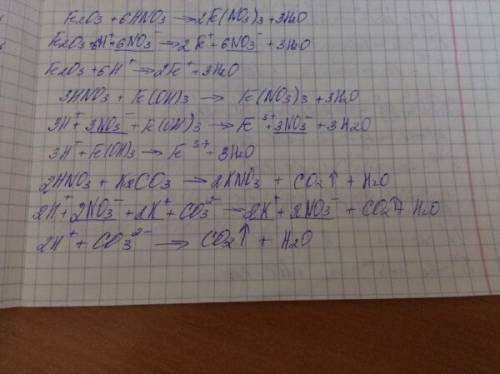 Fe2O3 + 6HNO3 → 2Fe(NO3)3 + 3H2O
Fe2O3 + 6H⁺ + 6NO3⁻ → 2Fe⁺ + 6NO3⁻ + 3H2O
Fe2O3 + 6H⁺ → 2Fe⁺ + 3H2O
3HNO3 + Fe(OH)3 → Fe(NO3)3 + 3H2O
3H⁺ + 3NO3⁻ + Fe(OH)3 → Fe³⁺ + 3NO3⁻ + 3H2O
3H⁺ + Fe(OH)3 → Fe³⁺ + 3H2O
2HNO3 + K2CO3 → 2KNO3 + CO2↑ + H2O
2H⁺ + 2NO3⁻ + 2K⁺ + CO3²⁻ → 2K⁺ + 2NO3⁻ + CO2↑ + H2O
2H⁺ + CO3²⁻ → CO2↑ + H2O